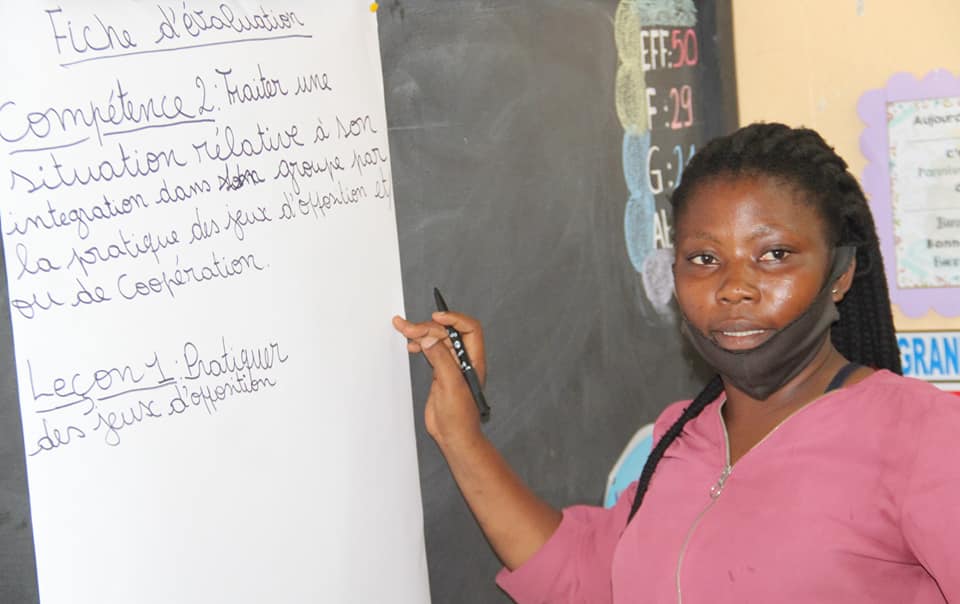 Fiche d'évaluation
Compétence 2: Traiter une
situation rélative à son
integration dans groupe par
la pratique des jeux d'opposition et
ou de Coopération.
Leçon 1: Pratiquer
des jeux d'opposition
EFF: 50
F: 29
G: 21
Aujourd
C'e
l'anniv
Bonn
GRAN